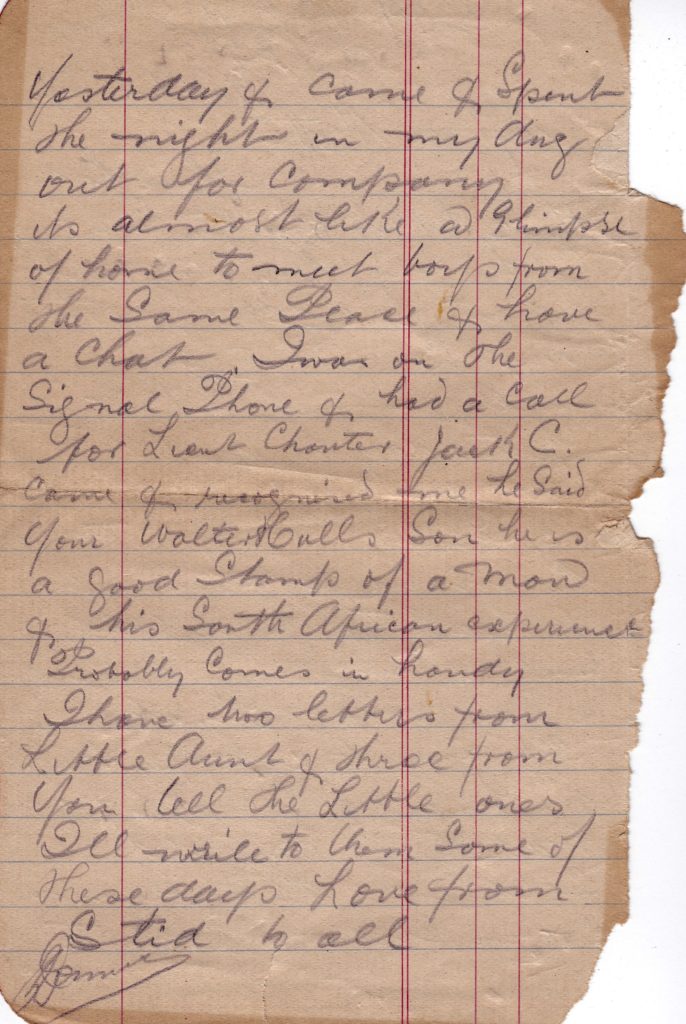 Yesterday & came & Spent
the night in my dug
out for Company
its almost like a Glimpse
of home to meet boys from
the Same Place & have
a Chat I was on the
Signal Phone & had a Call
for Lieut Chanter Jack C.
Came & recognised me he Said
Your Walter Son he is
a good Stamp of a man
& his South African experience
Probably Comes in handy
I have two letters from
Little Aunt & three from
You tell the Little ones
Ill write to them Some of
these days Love from
Stid to all